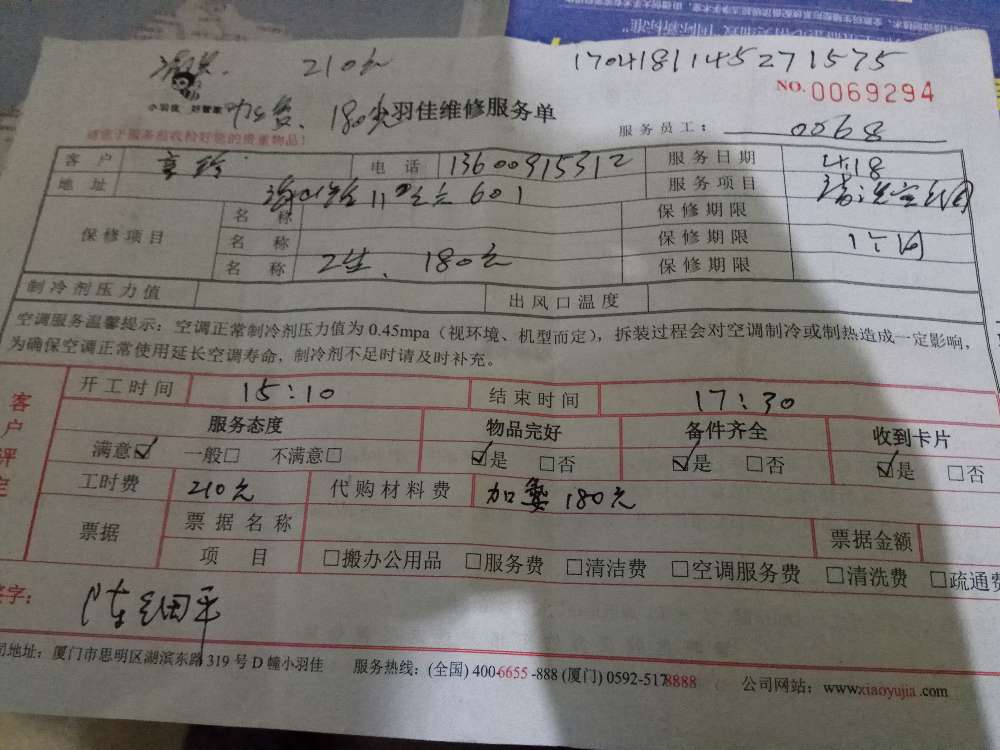 210元 1704181145271575
NO.0069294
小羽佳 好管家 180元 羽佳维修服务单
服务员工: 0068
请在于服务前收检好您的贵重物品!
客户 电话 13600915312 服务日期 4.18
地址 11 601 服务项目 清洗空调
名称 保修期限
保修项目 名称 保修期限 1个月
名称 180元 保修期限
制冷剂压力值 出风口温度
空调服务温馨提示: 空调正常制冷剂压力值为 0.45mpa (视环境、机型而定), 拆装过程会对空调制冷或制热造成一定影响,
为确保空调正常使用延长空调寿命, 制冷剂不足时请及时补充。
客户评定
开工时间 15:10 结束时间 17:30
服务态度 物品完好 备件齐全 收到卡片
满意☑ 一般□ 不满意□ ☑是 □否 ☑是 □否 ☑是 □否
工时费 210元 代购材料费 180元
票据 票据名称 票据金额
项目 □搬办公用品 □服务费 □清洁费 □空调服务费 □清洗费 □疏通费
字:
司地址: 厦门市思明区湖滨东路 319 号 D 幢小羽佳 服务热线: (全国) 400-6655-888 (厦门) 0592-5178888 公司网站: www.xiaoyujia.com